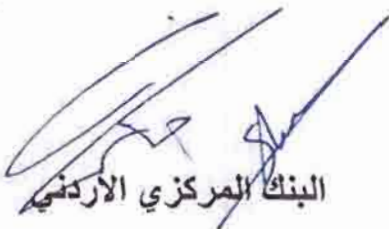 البنك المركزي الاردني